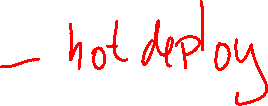 - hot deploy